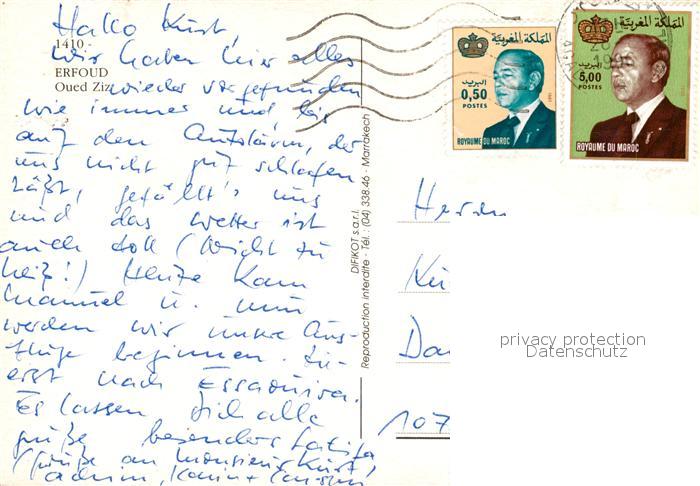 Hallo Kurt,
1410.-
wir haben hier alles
ERFOUD
wieder vorgefunden
Oued Ziz
wie immer und bis
auf den Autolärm, der
uns nicht gut schlafen
läßt, gefällt's uns
und das Wetter ist
auch toll (Nicht zu
heiß!) Heute kam
Manuel u. nun
werden wir unsre Aus-
flüge beginnen. Zu-
erst nach Essaouira.
Es lassen dich alle
grüße besonders Latifa
(grüße an Monsieur Kurt)
Karin
DIFIKOT s.a.r.l.
Reproduction interdite - Tél.: (04) 338.46 - Marrakech
المملكة المغربية
البريد
0,50
POSTES
ROYAUME DU MAROC
المملكة المغربية
البريد
5,00
POSTES
ROYAUME DU MAROC
Herrn
Kü
Da
107
privacy protection
Datenschutz